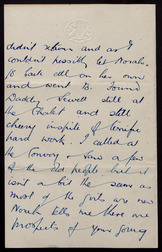 didn't return and as I
couldn't possibly let Norah
go back all on her own
and went B. Found
Daddy Sewell still at
the Chalet and still
cheery inspite of terrific
hard work. I called at
the Convoy. Saw a few
of the old people but it
isn't a bit the same as
most of the girls are new
Norah tells me there are
prospects of your going